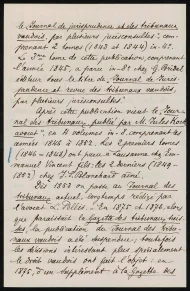 le Journal de jurisprudence et des tribunaux
vaudois, par plusieurs jurisconsultes, com-
prenant 2 tomes (1843 et 1844) in-4°.
Le 3me tome de cette publication, comprenant
l'année 1845, a paru in-8° chez
éditeur sous le titre de Journal de Juris-
prudence et revue des tribunaux vaudois,
par plusieurs jurisconsultes.
Après cette publication vient le Jour-
nal des tribunaux, publié par Mr Jules
avocat, en 4 volumes in-8° comprenant les
années 1846 à 1852. Les 2 premiers tomes
(1846-1848) ont paru à Lausanne chez Em-
manuel Vincent fils; les 2 derniers (1849-
1852) chez J. S. Blanchard aîné.
Dès 1853 on passe au Journal des
tribunaux actuel, longtemps rédigé par
l'avocat L. Pellis. En 1875 et 1876, alors
que paraissait la Gazette des tribunaux suis-
ses, la publication du Journal des tribu-
naux vaudois a été suspendue; toutefois
les décisions intéressant plus spécialement
le droit vaudois ont fait l'objet, en
1875, d'un supplément à la Gazette des